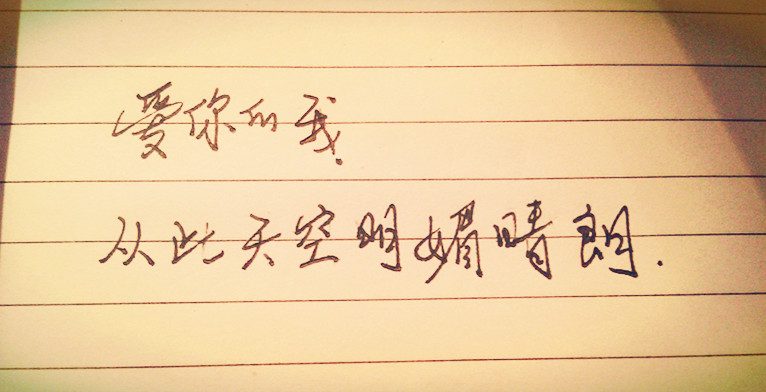 爱你的我.
从此天空明媚晴朗.